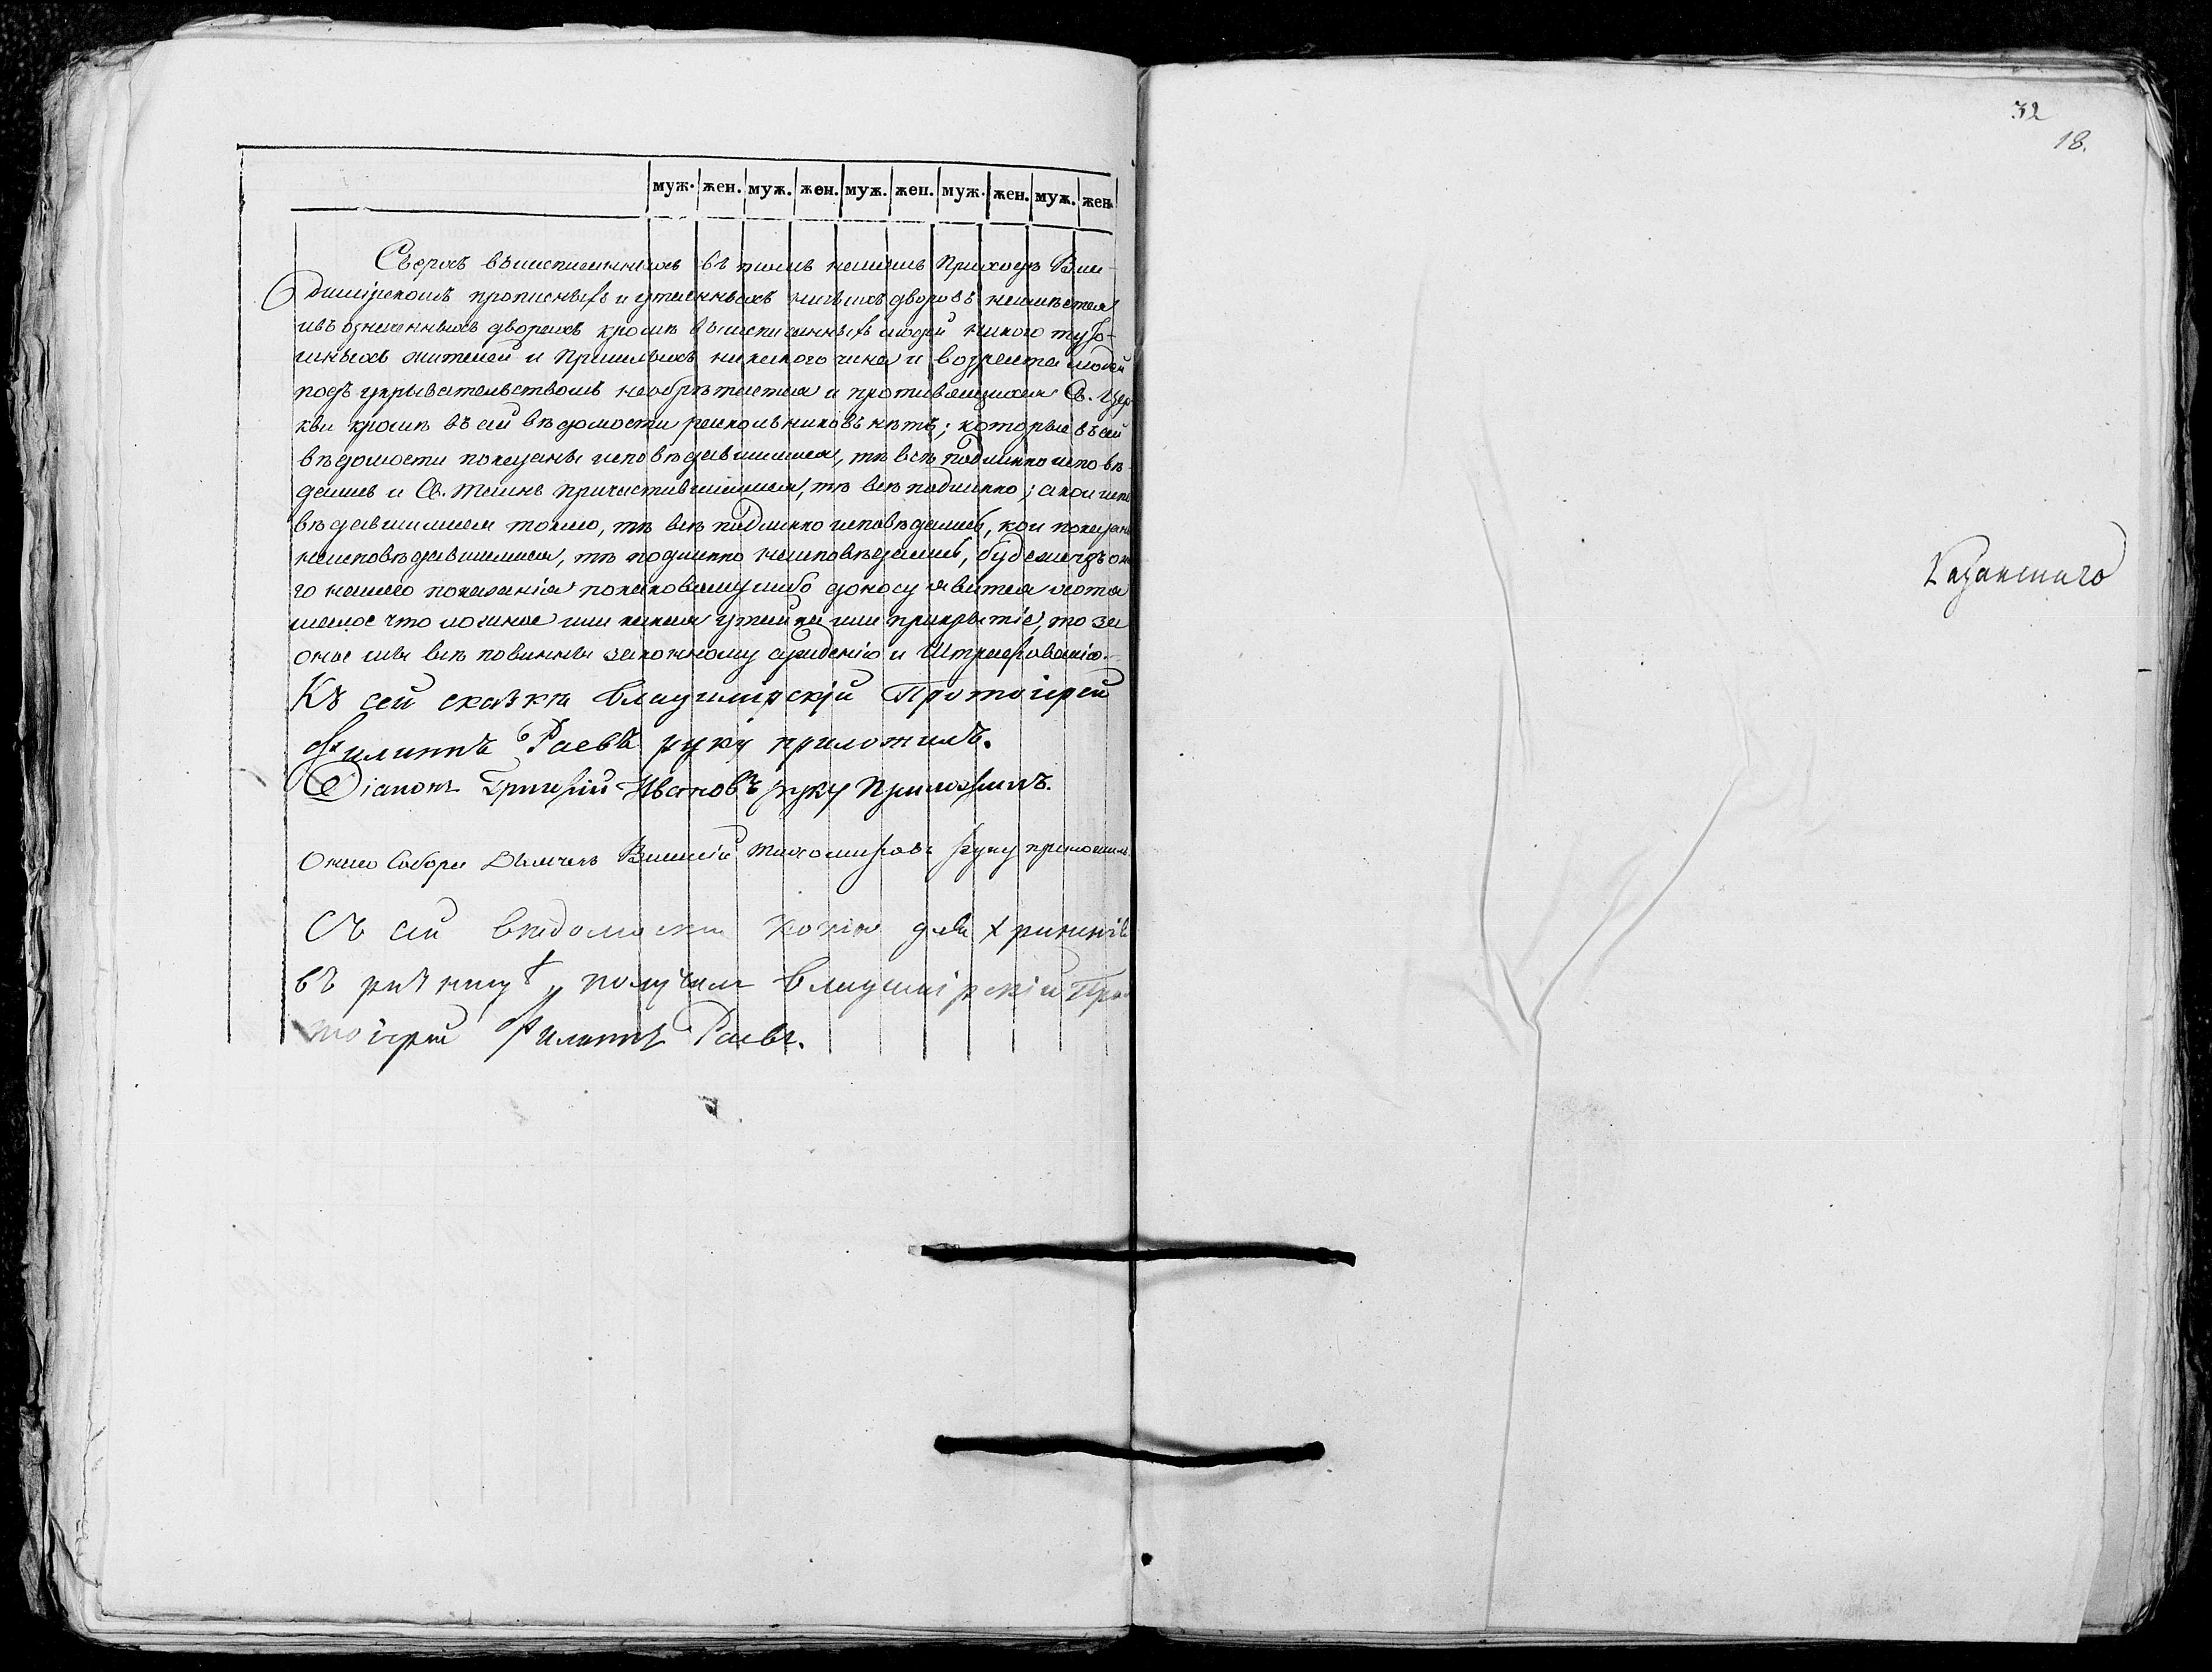 муж. жен. муж. жен. муж. жен. муж. жен. муж. жен.
Сверхъ вышеписанныхъ въ томъ нашемъ приходѣ Вла-
димірскомъ прописныхъ и утаенныхъ ничьихъ дворовъ неимѣется
ивъ означенныхъ дворахъ кромѣ вышеписанныхъ людей никого тутО-
шныхъ жителей и пришлыхъ никакого чина и возраста людей
подъ укрывательствомъ необрѣтается и противящихся Св. Цер
кви кромѣ въ сей вѣдомости раскольниковъ нѣтъ; которые въ сей
вѣдомости показаны исповѣдавшимися, тѣ всѣ подлинно исповѣ-
дались и Св. Таинъ причастившимися, тѣ всѣ подлинно; а кои испо
вѣдавшимися токмо, тѣ всѣ подлинно исповѣдались, кои показаны
неисповѣдавшимися, тѣ подлинно неисповѣдались, буде же изъ она
го нашего показанія покаковому либо доносу явится хотя
малое что ложное или какая утайка или прикрытіе, то за
оное мы всѣ повинны законному сужденію и Штрафованію.
Къ сей сказкѣ Владимірскій Протоіерей
Филиппъ Раевъ руку приложилъ.
Діаконъ Григорій Ивановъ руку Приложилъ.
Онаго Собора Дьячекъ Василій Тихомировъ руку приложилъ
Съ сей вѣдомости копію для храненія
въ ризницу получилъ Владимірскій Про-
тоіерей Филиппъ Раевъ.
32
18.
Казанскаго